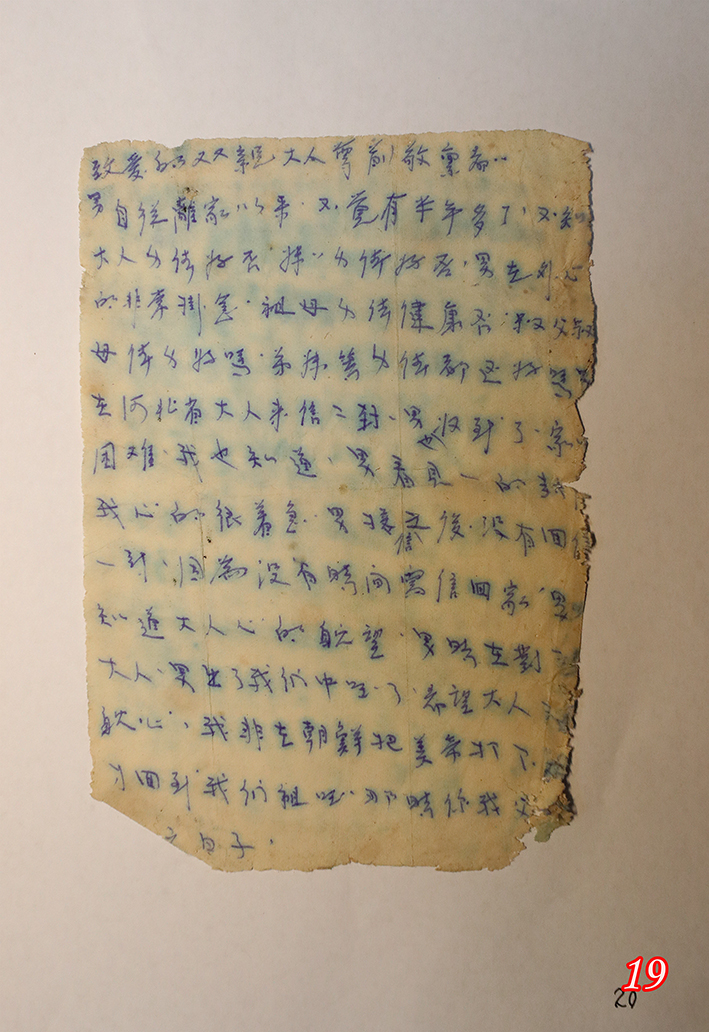 致愛的双親大人尊前敬禀者
男自從離家以來又覚有半年多了又知
大人身体好否妹身体好否男在外心
的非常掛念祖母身体健康否叔父叔
母体身好嗎弟妹等身体都还好嗎
在河北省大人来信二封男也収到了家
困难我也知道男看見一的封
我心的很着急男接之信後没有回信
一封因為没有時間寫信回家男
知道大人心的躭望男時在對
大人男出了我们中哇了希望大人
躭心我非在朝鲜把美帝打下
才回到我们祖哇那時你我父
日子
19
20